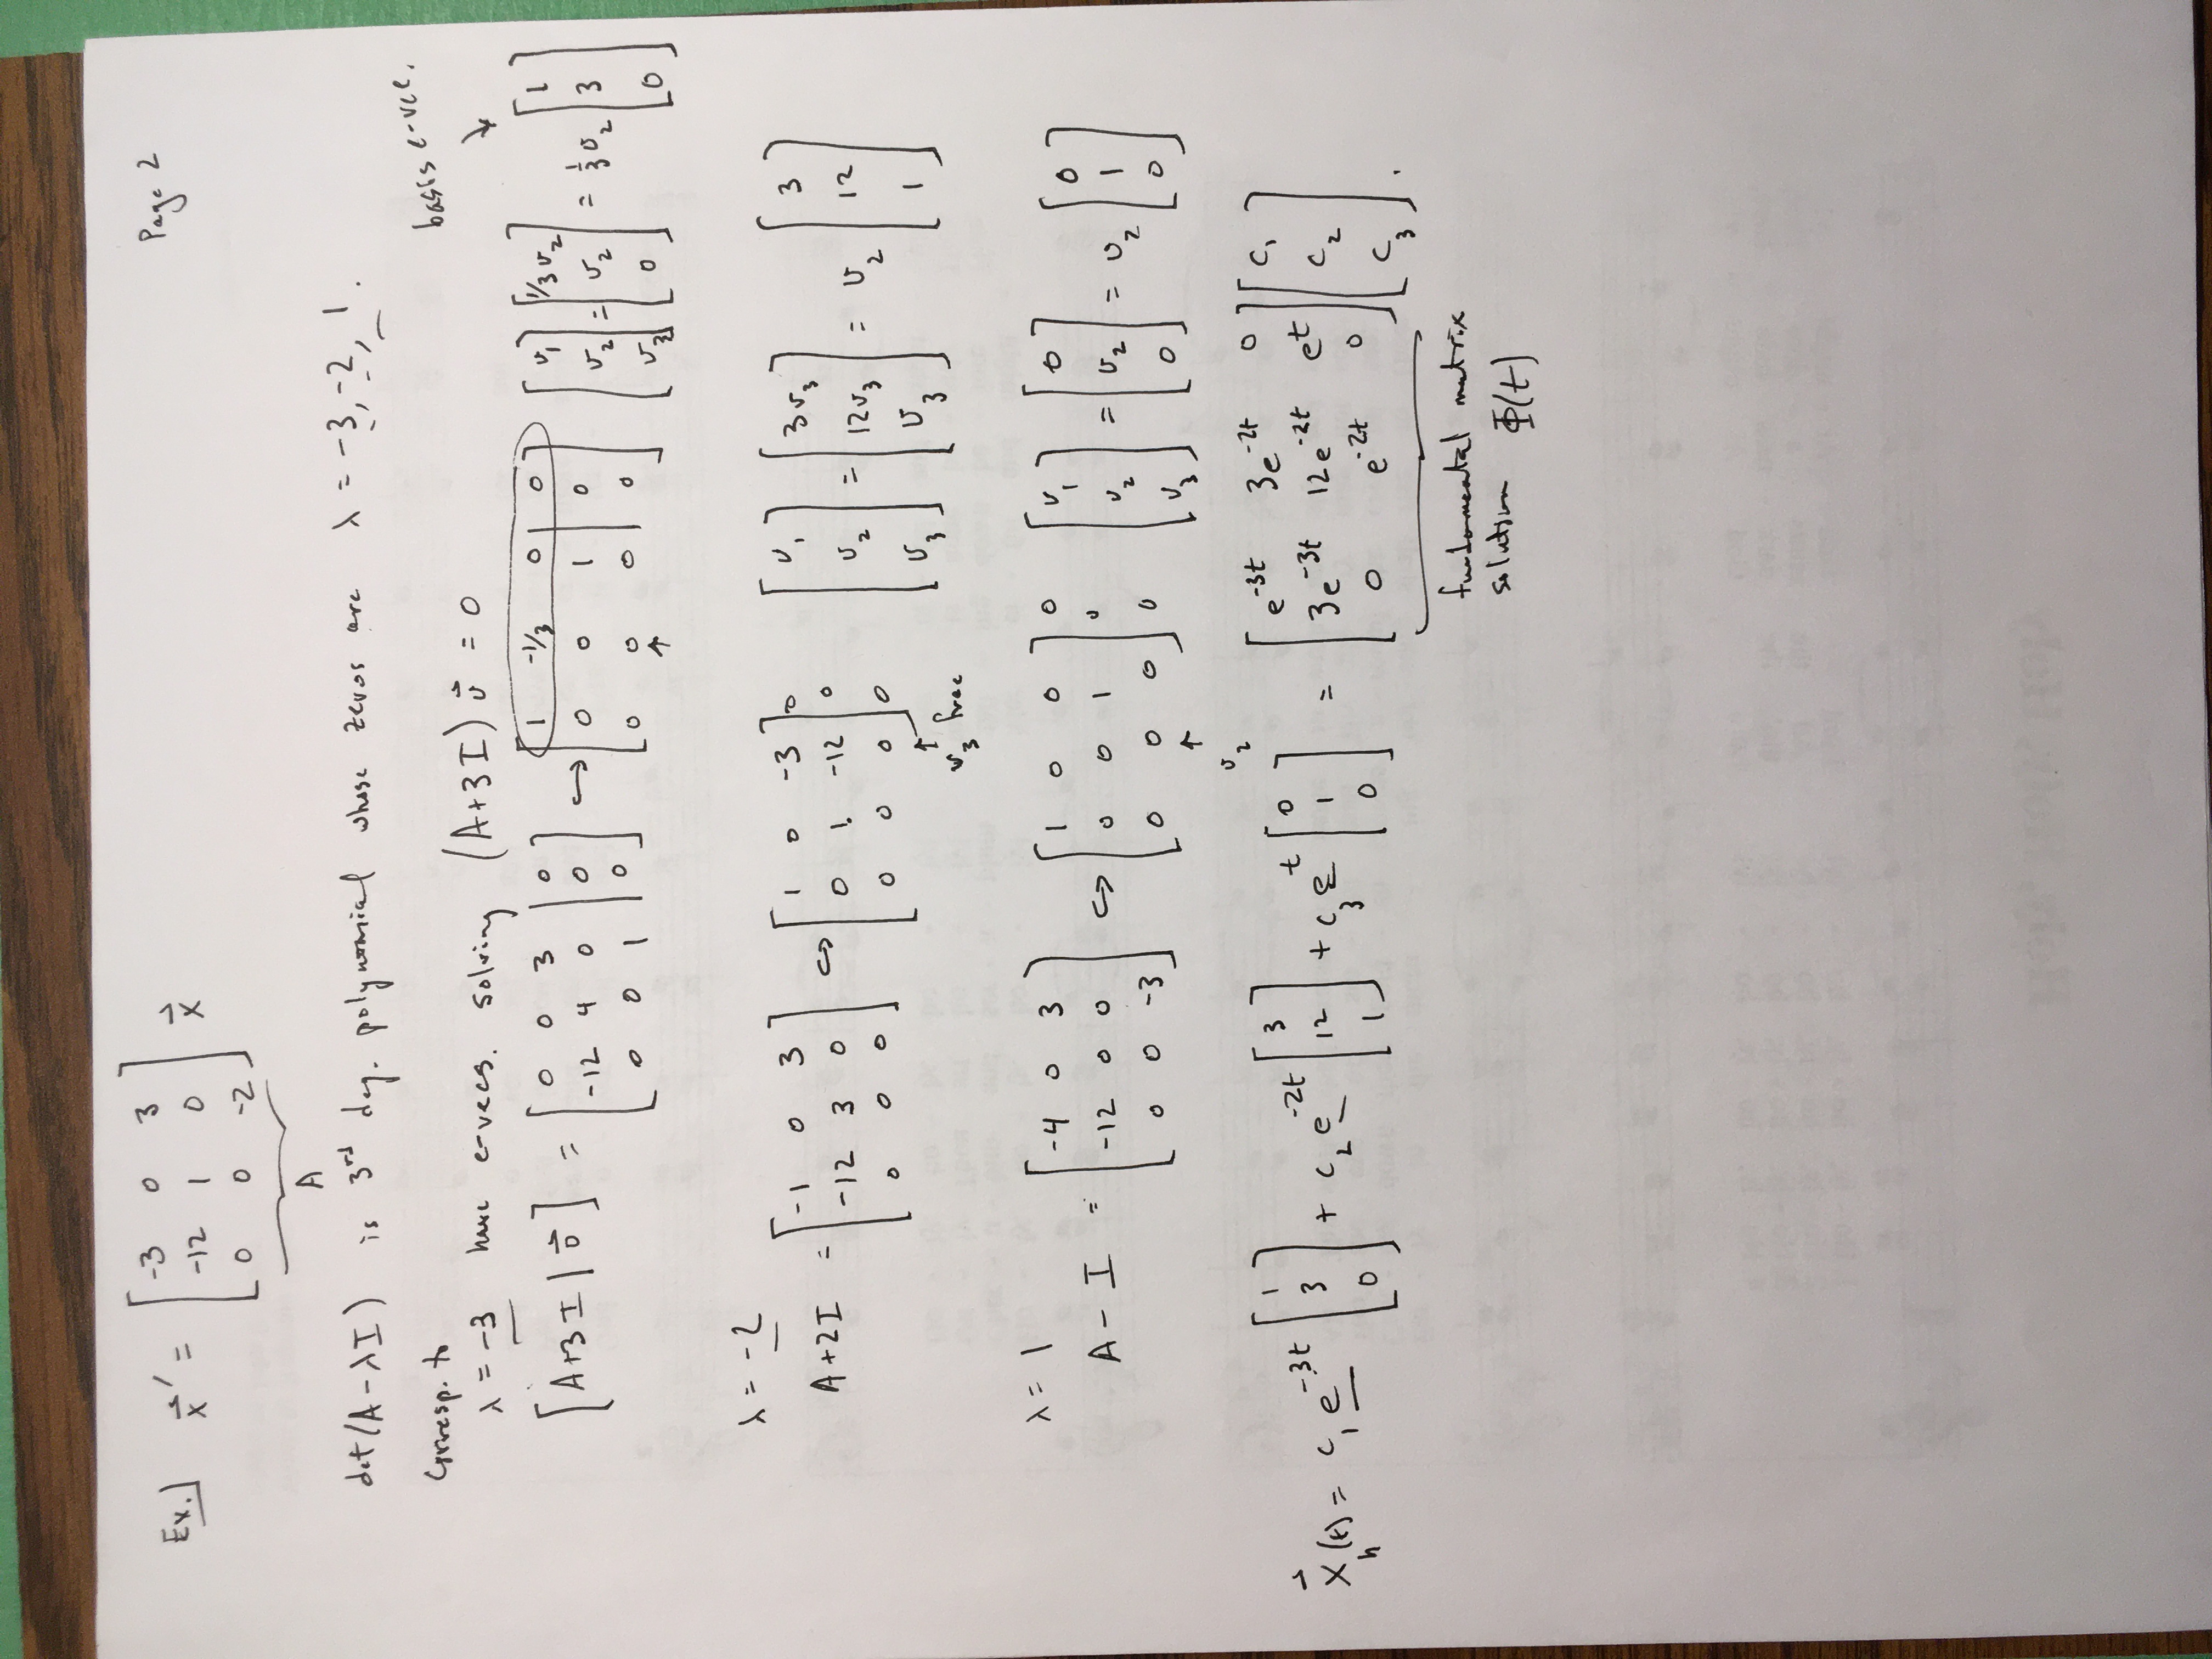 Page 2
Ex.] x⃗' = [ -3 0 3 ; -12 1 0 ; 0 0 -2 ] x⃗
A
det(A - λI) is 3rd deg. polynomial whose zeros are λ = -3, -2, 1.
corresp. to basis e-vec.
λ = -3 have e-vecs. solving (A+3I) v⃗ = 0
[ A+3I | 0⃗ ] = [ 0 0 3 | 0 ; -12 4 0 | 0 ; 0 0 1 | 0 ] ↪ [ 1 -1/3 0 | 0 ; 0 0 1 | 0 ; 0 0 0 | 0 ] [ v1 ; v2 ; v3 ] = [ 1/3 v2 ; v2 ; 0 ] = 1/3 v2 [ 1 ; 3 ; 0 ]
↑
λ = -2
A+2I = [ -1 0 3 ; -12 3 0 ; 0 0 0 ] ↪ [ 1 0 -3 ; 0 1 -12 ; 0 0 0 ] 0 0 0 [ v1 ; v2 ; v3 ] = [ 3v3 ; 12v3 ; v3 ] = v2 [ 3 ; 12 ; 1 ]
↑
v3 free
λ = 1
A - I = [ -4 0 3 ; -12 0 0 ; 0 0 -3 ] ↪ [ 1 0 0 ; 0 0 1 ; 0 0 0 ] 0 0 0 [ v1 ; v2 ; v3 ] = [ 0 ; v2 ; 0 ] = v2 [ 0 ; 1 ; 0 ]
↑
v2
x⃗h(t) = c1 e^-3t [ 1 ; 3 ; 0 ] + c2 e^-2t [ 3 ; 12 ; 1 ] + c3 e^t [ 0 ; 1 ; 0 ] = [ e^-3t 3e^-2t 0 ; 3e^-3t 12e^-2t e^t ; 0 e^-2t 0 ] [ c1 ; c2 ; c3 ] .
fundamental matrix
solution Φ(t)